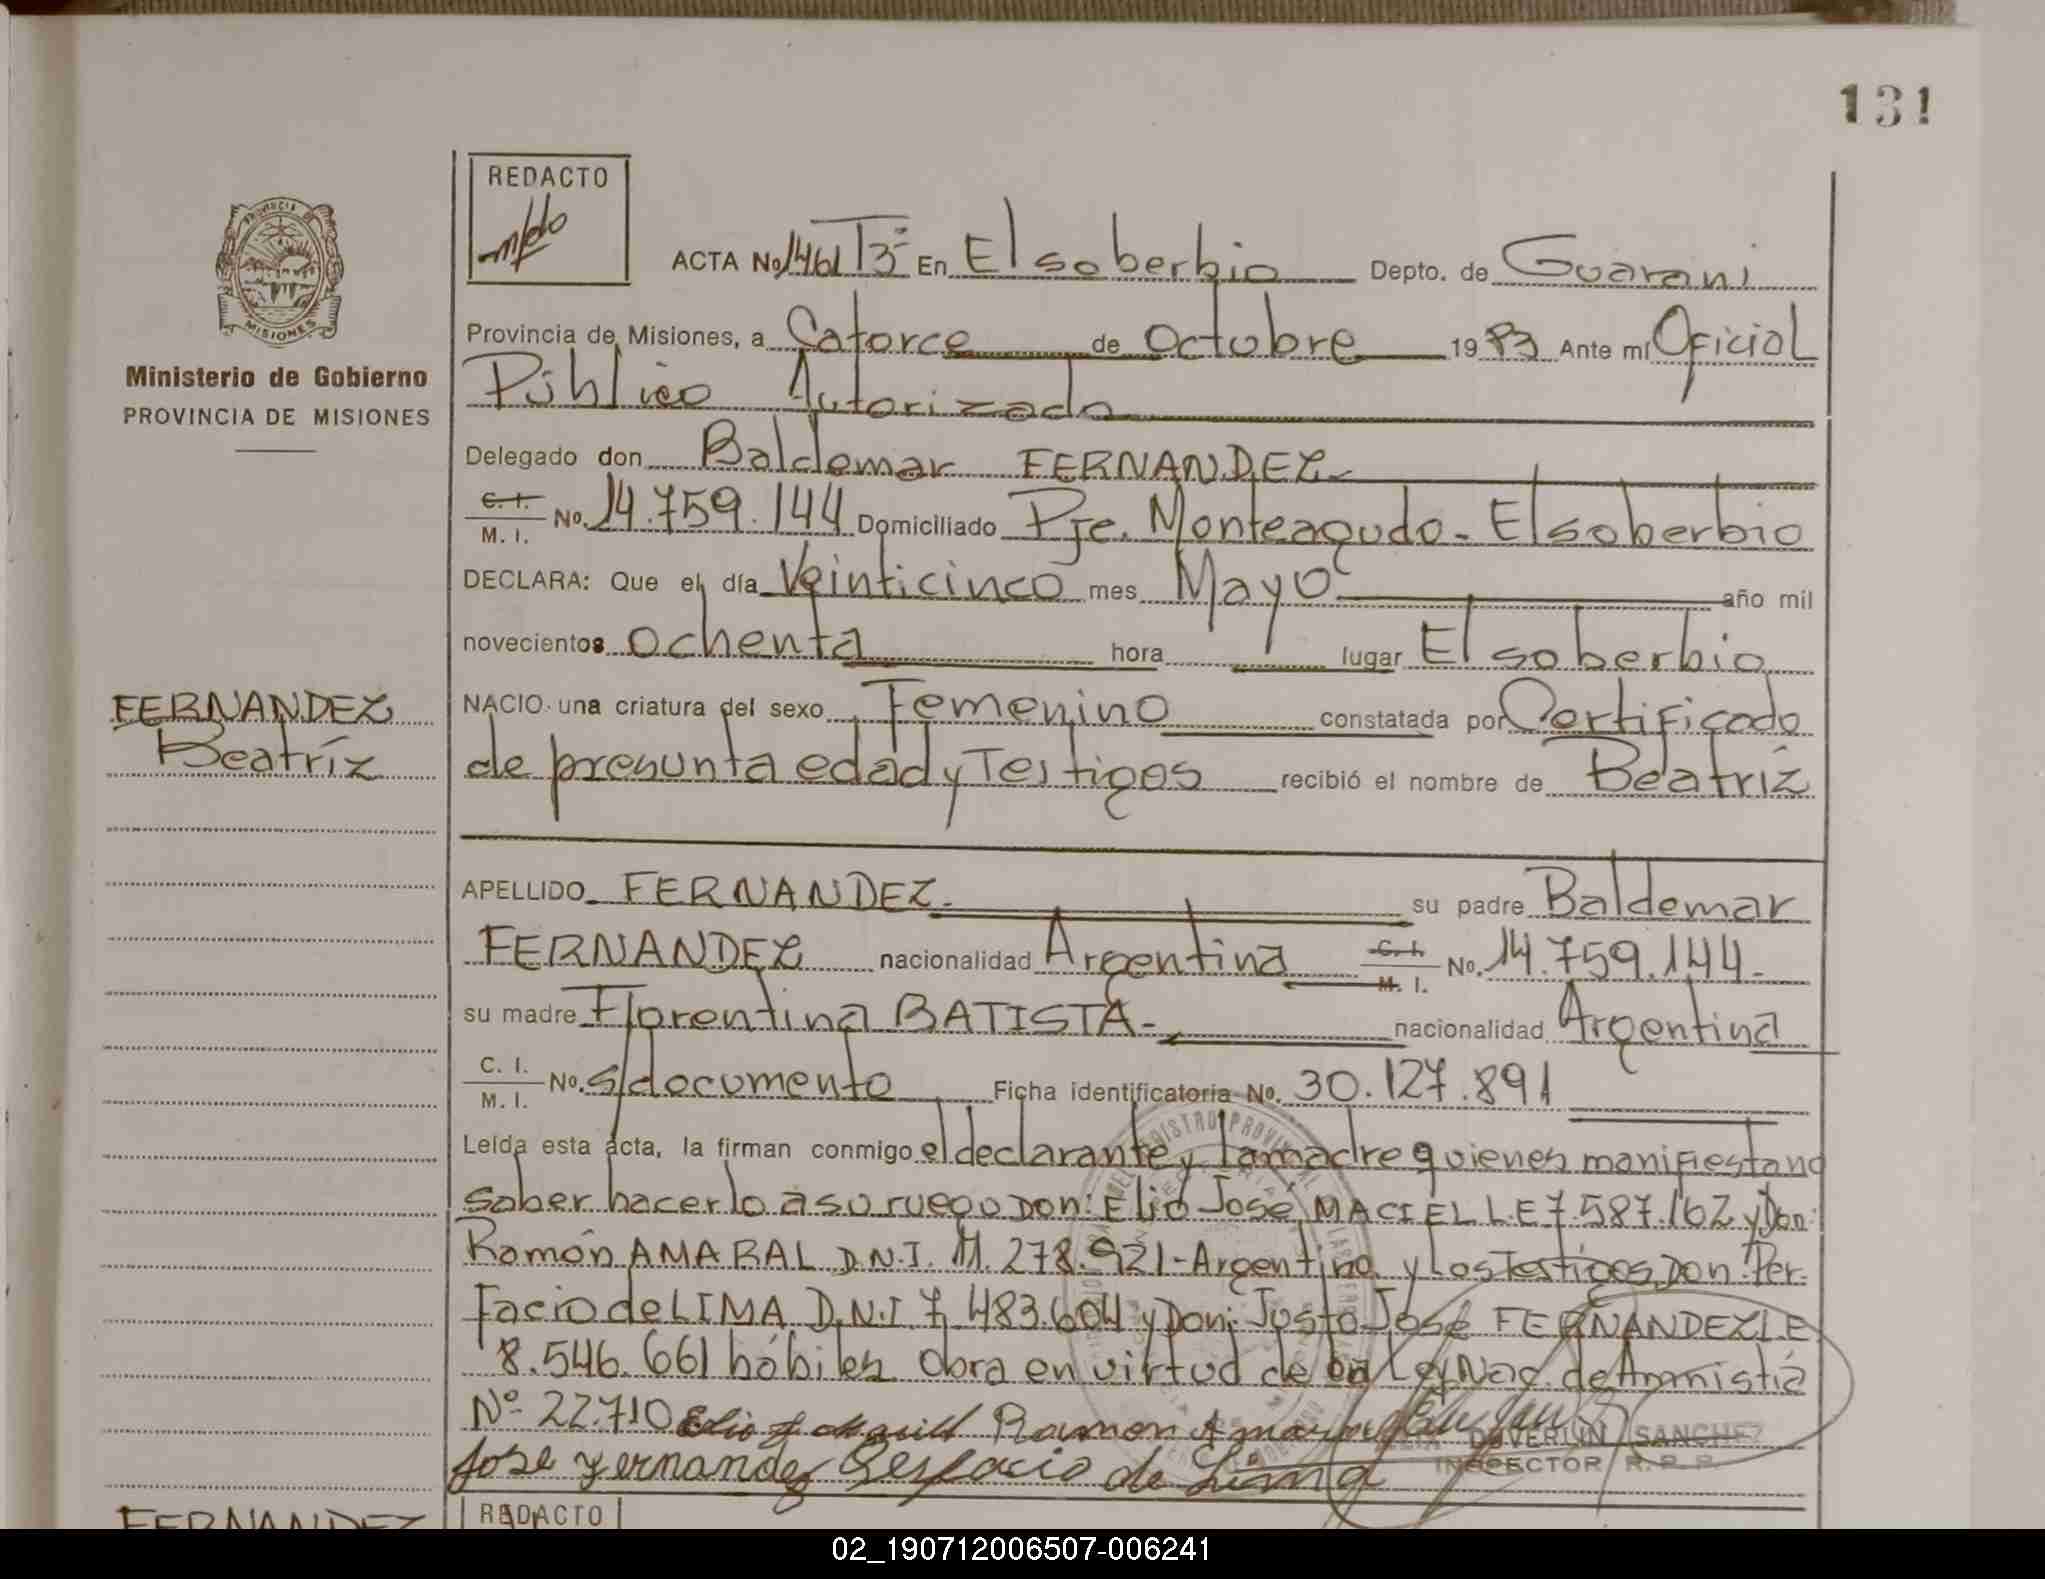 131
REDACTO
PROVINCIA DE
MISIONES
Ministerio de Gobierno
PROVINCIA DE MISIONES
ACTA No 1461 T3º En El soberbio Depto. de Guarani
Provincia de Misiones, a Catorce de Octubre 1983 Ante mí Oficial
Público Autorizado
Delegado don Baldemar FERNANDEZ
C. I. M. I. No. 14.759.144 Domiciliado Pje. Monteagudo - El soberbio
DECLARA: Que el día Veinticinco mes Mayo año mil
novecientos ochenta hora lugar El soberbio
FERNANDEZ
Beatríz
NACIO una criatura del sexo Femenino constatada por Certificado
de presunta edad y Testigos recibió el nombre de Beatríz
APELLIDO FERNANDEZ. su padre Baldemar
FERNANDEZ nacionalidad Argentina C. I. M. I. No. 14.759.144-
su madre Florentina BATISTA- nacionalidad Argentina
C. I. M. I. No. s/documento Ficha identificatoria No. 30.127.891
Leída esta acta, la firman conmigo el declarante y la madre quienes manifiestan no
saber hacerlo a su ruego Don: Elio José MACIEL L.E 7.587.162 y Don:
Ramón AMARAL D.N.I. 11.278.921-Argentina y Los Testigos Don: Per-
facio de LIMA D.N.I 7.483.604 y Don: Justo José FERNANDEZ L.E
8.546.661 hábiles Obra en virtud de la Ley Nac. de Amnistiá
Nº 22.710 Ramon Amaral
Jose Fernandez Perfacio de Lima
DUVERLIN SANCHEZ
INSPECTOR R. P. P.
FERNANDEZ
REDACTO
02_190712006507-006241